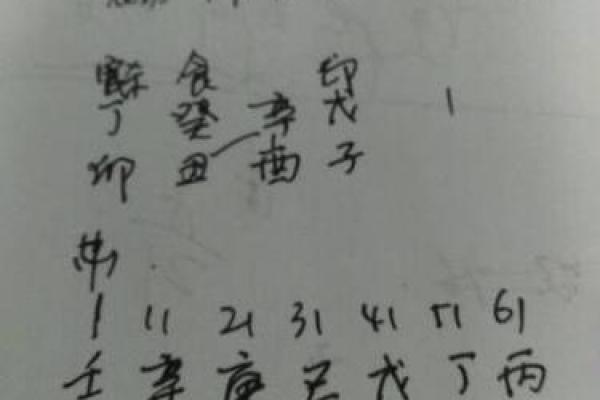 杀 食 印
丁 癸 辛 戊 1
卯 丑 酉 子
1 11 21 31 41 51 61
壬 辛 庚 己 戊 丁 丙